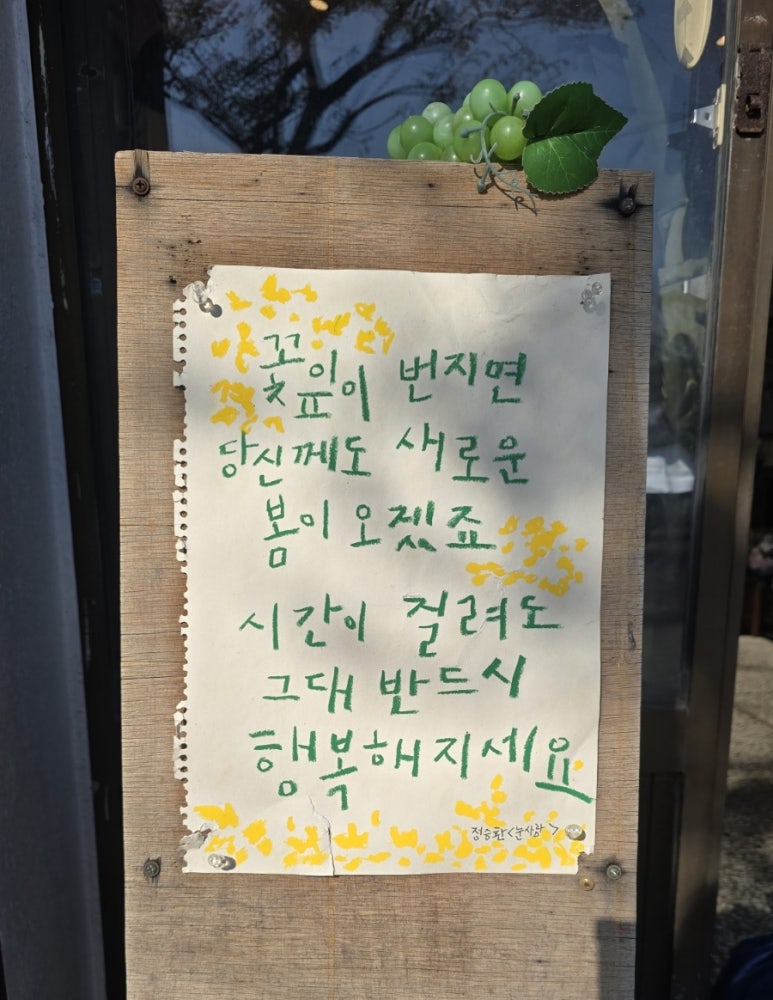 꽃잎이 번지면
당신께도 새로운
봄이 오겠죠
시간이 걸려도
그대 반드시
행복해지세요
정승환<눈사람>